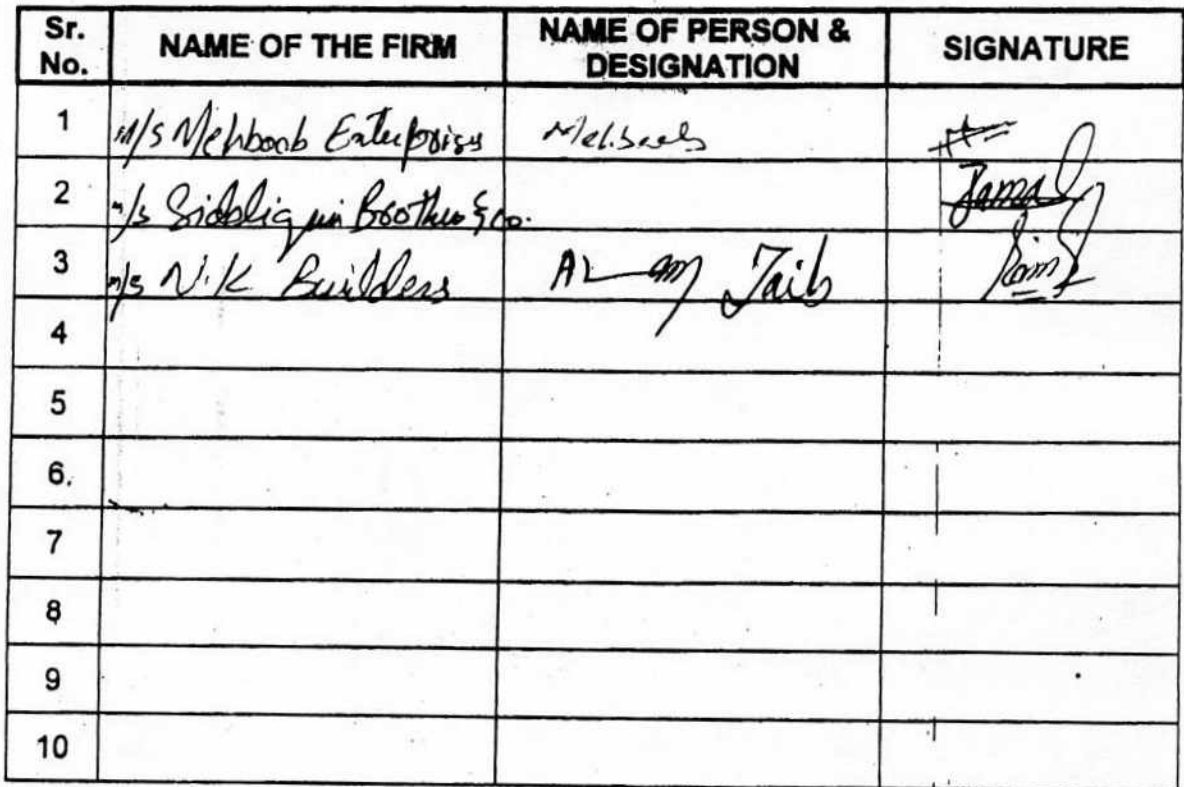 Sr. No. NAME OF THE FIRM NAME OF PERSON & DESIGNATION SIGNATURE
1 M/S Mehboob Enterprises Mehboob
2 M/s Siddiqui Brothers & Co. Jamal
3 M/s N.K Builders
4
5
6.
7
8
9
10